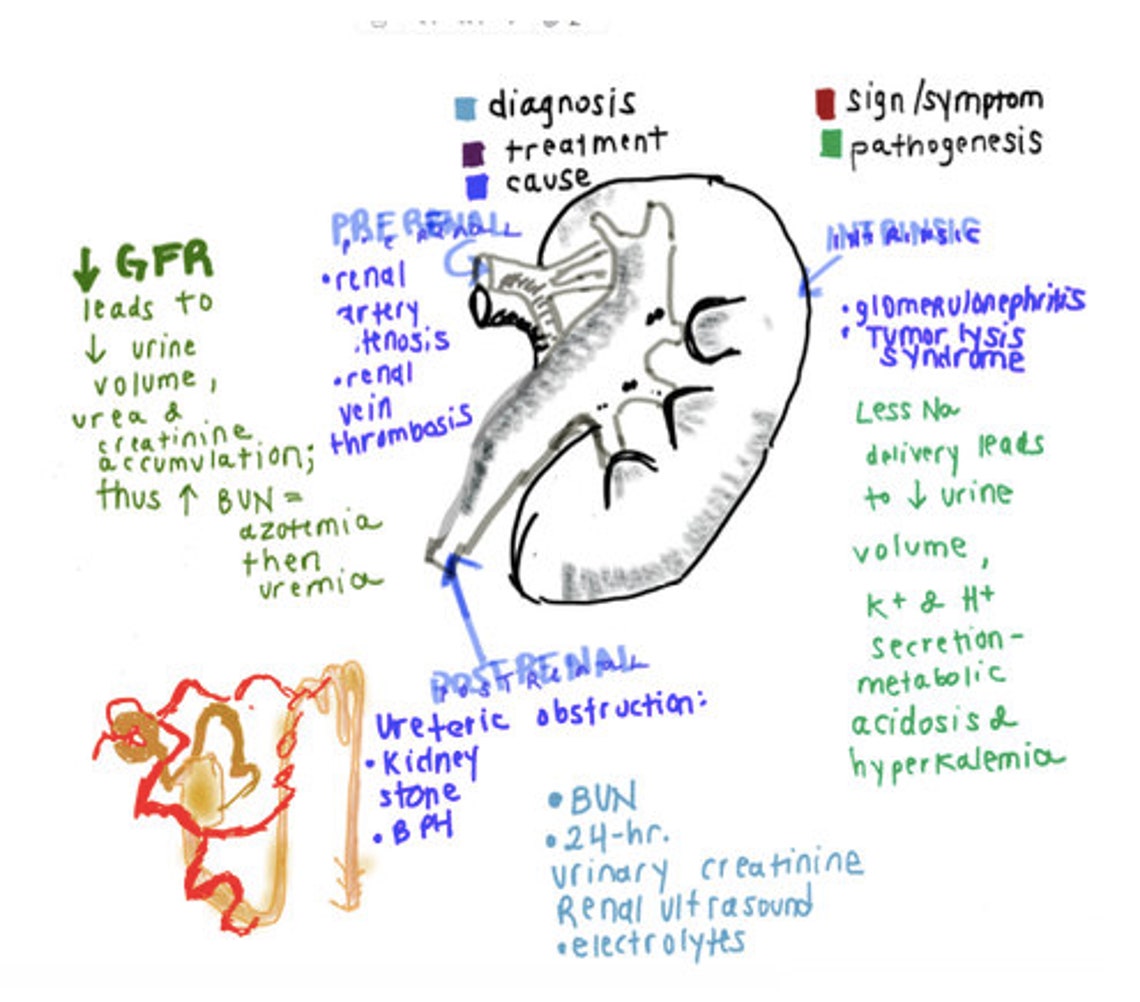 diagnosis
treatment
cause
sign/symptom
pathogenesis
↓ GFR
leads to
↓ urine
volume,
urea &
creatinine
accumulation;
thus ↑ BUN =
azotemia
then
uremia
PRERENAL
•renal
artery
.tenosis
•renal
vein
thrombosis
INTRINSIC
•glomerulonephritis
• Tumor lysis
syndrome
Less Na
delivery leads
to ↓ urine
volume,
K+ & H+
secretion-
metabolic
acidosis &
hyperkalemia
POSTRENAL
Ureteric obstruction:
•Kidney
stone
•BPH
•BUN
•24-hr.
urinary creatinine
Renal ultrasound
•electrolytes